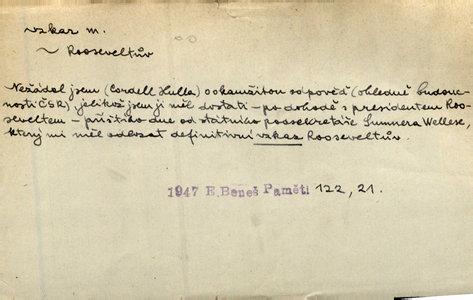 vzkaz m.
~ Rooseveltův
Nežádal jsem (Cordell Hulla) o okamžitou odpověď (ohledně budouc-
nosti ČSR) jelikož jsem ji měl dostati – po dohodě s presidentem Roo-
seveltem – příštího dne od státního podsekretáře Sumnera Wellese,
který mi měl odevzat definitivní vzkaz Rooseveltův.
1947 E. Beneš Paměti 122, 21.